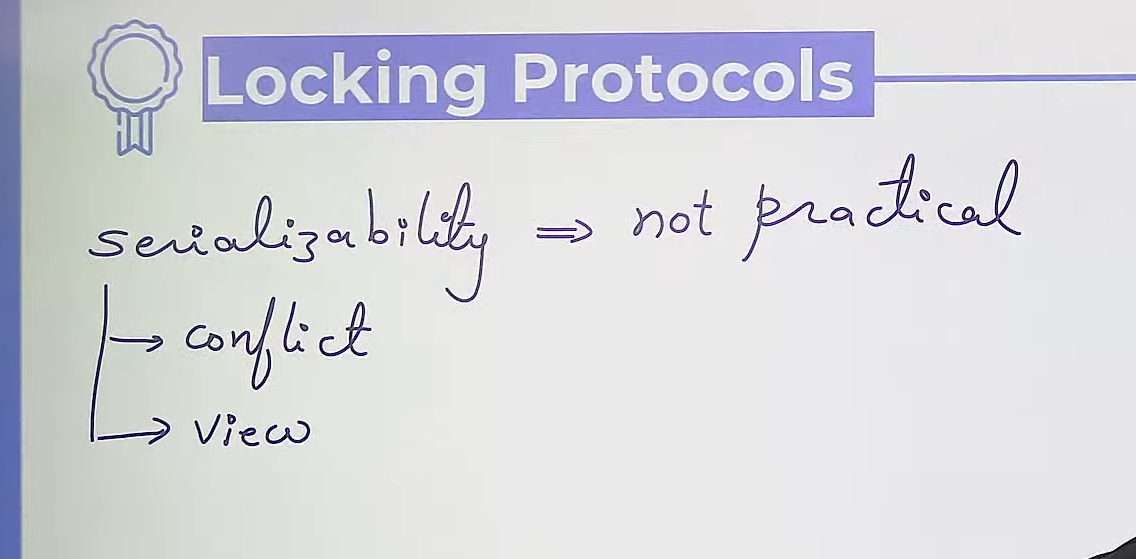 Locking Protocols
serializability ⇒ not practical
→ conflict
→ view